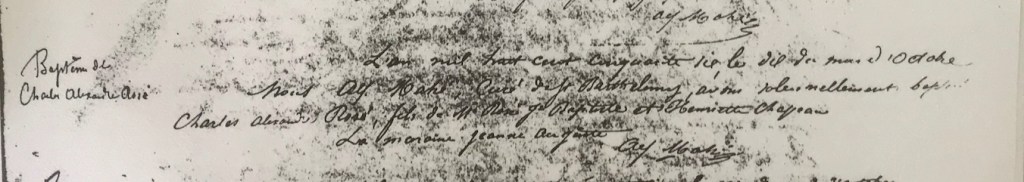 Alf Mahé
Baptême de
Charles Alexandre René
L'an mil huit cent cinquante six le dix du mois d'Octobre
Nous Alf Mahé Curé de St Barthelemy, avons solennellement bapt
Charles Alexandre René, fils de St René Jn Baptiste et Henriette Chapeau
La maraine Jeanne Augusta
Alf Mahé